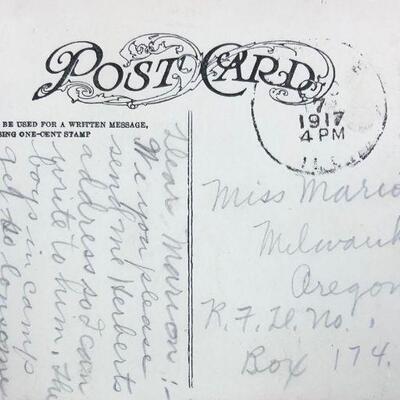 POST CARD
BE USED FOR A WRITTEN MESSAGE,
SING ONE-CENT STAMP
7
1917
4 PM
Dear Marion:-
you please
send me Herberts
address so I can
write to him. The
boys in camp
get so lonesome
Miss Mario
Milwauk
Oregon
R.F.D. No. 1
Box 174.